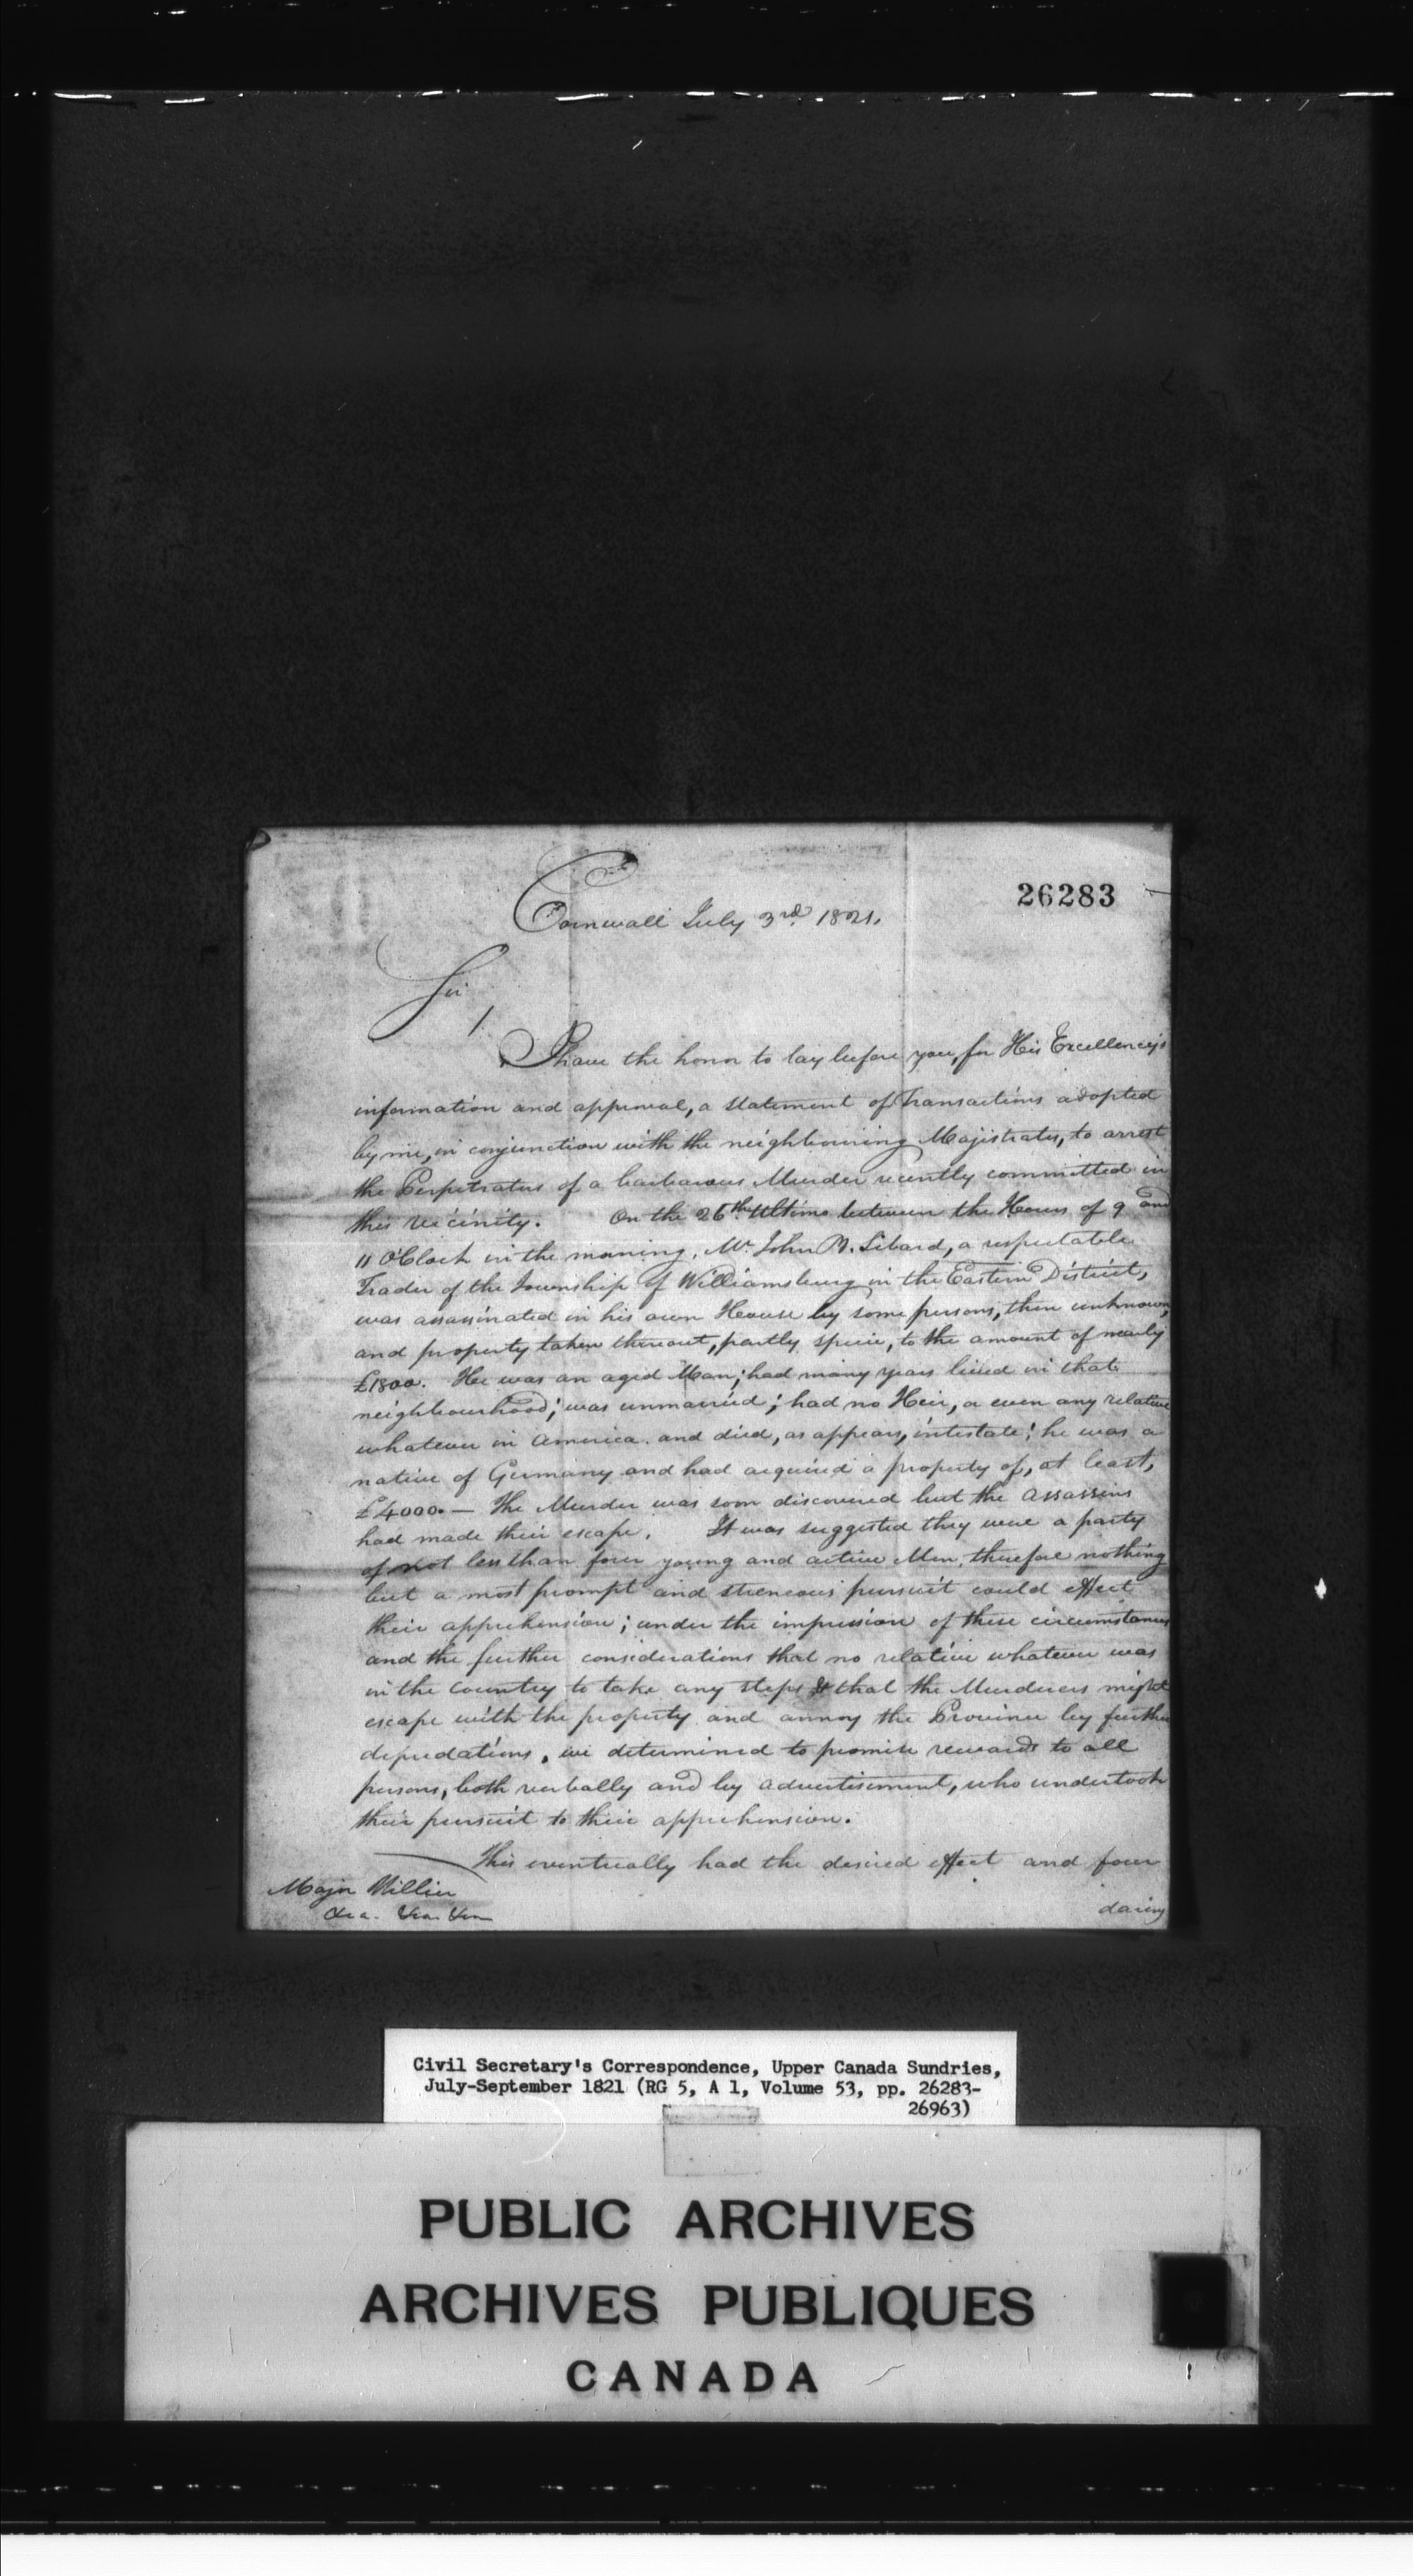 26283
Cornwall July 3rd 1821.
Sir
I have the honor to lay before you, for His Excellency's
information and approval, a statement of Transactions adopted
by me, in conjunction with the neighbouring Magistrates, to arrest
the Perpetrators of a barbarous Murder recently committed in
this vicinity. On the 26th Ultimo between the Hours of 9 and
11 O'Clock in the morning, Mr. John B. Sibard, a respectable
Trader of the Township of Williamsburg in the Eastern District,
was assassinated in his own House by some persons, then unknown,
and property taken thereout, partly specie, to the amount of nearly
£1800. He was an aged Man; had many years lived in that
neighbourhood; was unmarried; had no Heir, or even any relative
whatever in America. and died, as appears, intestate; he was a
native of Germany and had acquired a property of, at least,
£4000. — The Murder was soon discovered but the assassins
had made their escape. It was suggested they were a party
of not less than four young and active Men, therefore nothing
but a most prompt and streneous pursuit could effect
their apprehension; under the impression of these circumstances
and the further considerations that no relative whatever was
in the country to take any steps & that the Murderers might
escape with the property and annoy the Province by further
depredations, we determined to promise rewards to all
persons, both verbally and by advertisement, who undertook
their pursuit to their apprehension.
This eventually had the desired effect and four
Major Hillier
&c a. &c a. &c
daring
Civil Secretary's Correspondence, Upper Canada Sundries,
July-September 1821 (RG 5, A 1, Volume 53, pp. 26283-
26963)
PUBLIC ARCHIVES
ARCHIVES PUBLIQUES
CANADA